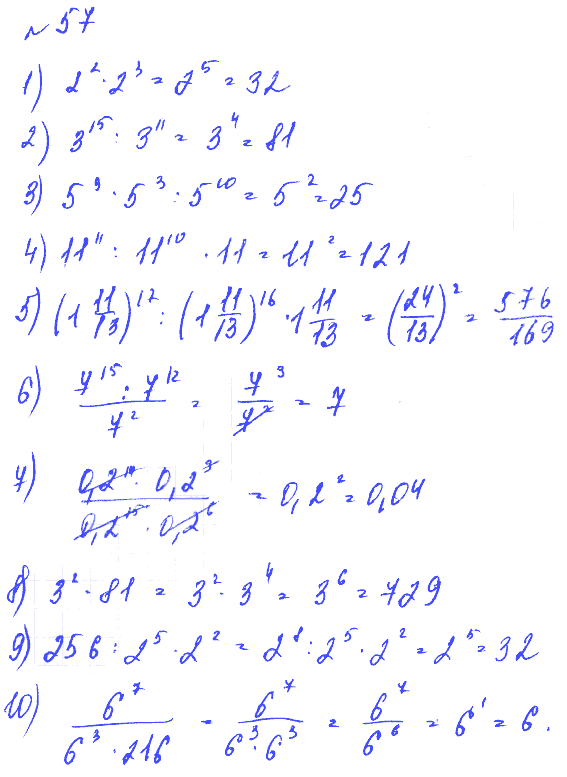 №57
1) 2² · 2³ = 2⁵ = 32
2) 3¹⁵ : 3¹¹ = 3⁴ = 81
3) 5⁹ · 5³ : 5¹⁰ = 5² = 25
4) 11¹¹ : 11¹⁰ · 11 = 11² = 121
5) (1 11/13)¹⁷ : (1 11/13)¹⁶ · 1 11/13 = (24/13)² = 576/169
6) (7¹⁵ : 7¹²)/7² = 7³/7² = 7
7) (0,2¹⁴ · 0,2⁷)/(0,2¹³ · 0,2⁶) = 0,2² = 0,04
8) 3² · 81 = 3² · 3⁴ = 3⁶ = 729
9) 256 : 2⁵ · 2² = 2⁸ : 2⁵ · 2² = 2⁵ = 32
10) 6⁷/(6³ · 216) = 6⁷/(6³ · 6³) = 6⁷/6⁶ = 6¹ = 6.